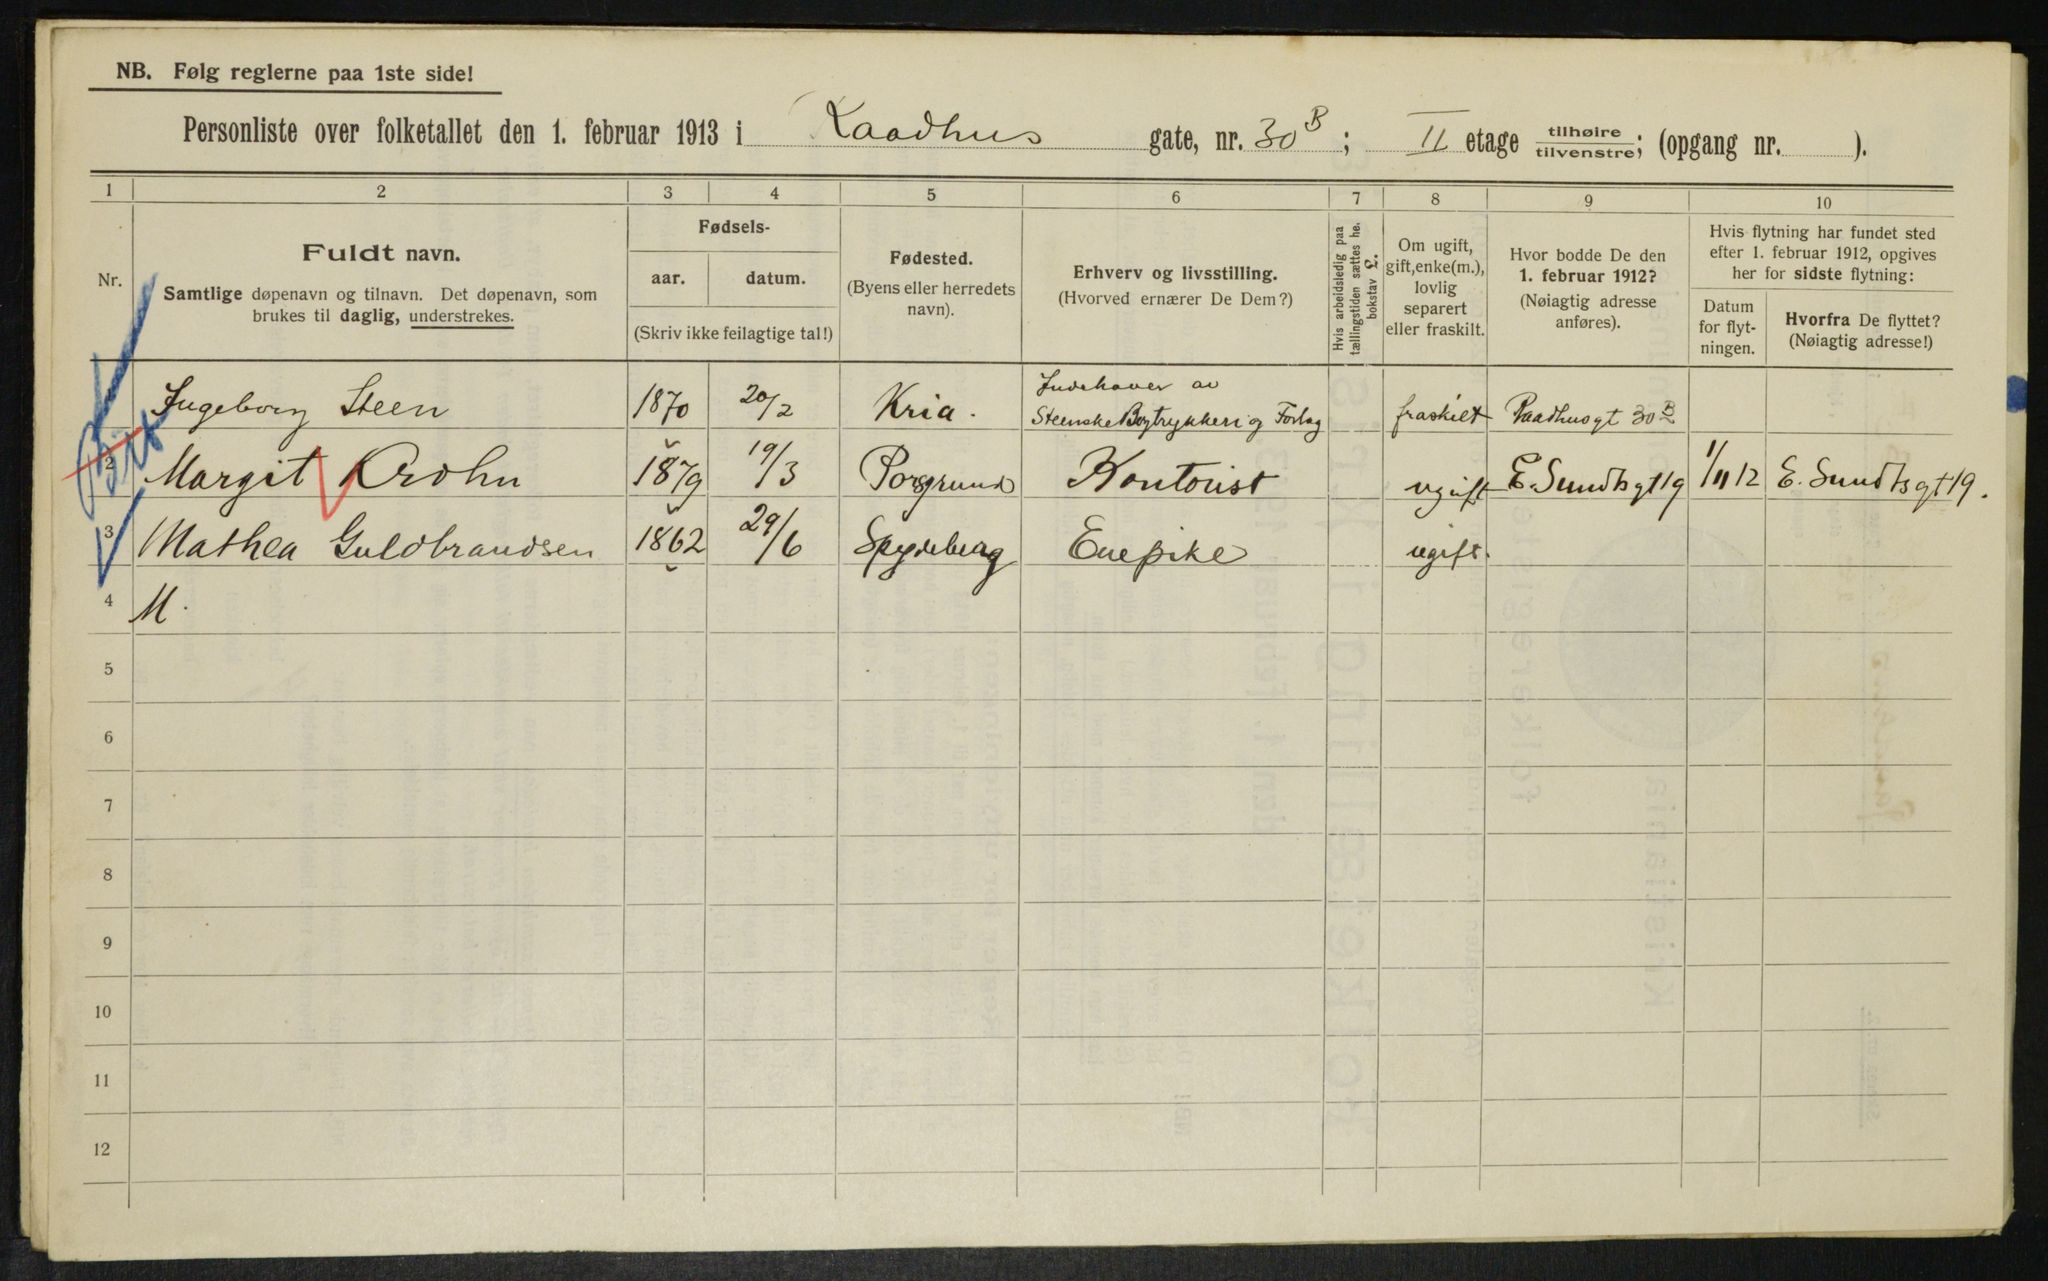 NB. Følg reglerne paa 1ste side!
Personliste over folketallet den 1. februar 1913 i Raadhus gate, nr. 30B; II etage tilhøire tilvenstre; (opgang nr. ).
1 2 3 4 5 6 7 8 9 10
Nr.
Fuldt navn.
Samtlige døpenavn og tilnavn. Det døpenavn, som
brukes til daglig, understrekes.
Fødsels-
aar. datum.
(Skriv ikke feilagtige tal!)
Fødested.
(Byens eller herredets
navn).
Erhverv og livsstilling.
(Hvorved ernærer De Dem?)
Hvis arbeidsledig paa
tællingstiden sættes he.
bokstav £.
Om ugift,
gift, enke(m.),
lovlig
separert
eller fraskilt.
Hvor bodde De den
1. februar 1912?
(Nøiagtig adresse
anføres).
Hvis flytning har fundet sted
efter 1. februar 1912, opgives
her for sidste flytning:
Datum
for flyt-
ningen.
Hvorfra De flyttet?
(Nøiagtig adresse!)
Ingeborg Steen 1870 20/2 Kria. Indehaver av
Steenske Bogtrykkeri og Forlag fraskilt Raadhusgt 30B
2 Margit Krohn 1879 19/3 Porsgrund Kontorist ugift E. Sundtsgt 19 1/11 12 E. Sundtsgt 19.
3 Mathea Guldbrandsen 1862 29/6 Spydeberg Enepike ugift.
4 M.
5
6
7
8
9
10
11
12